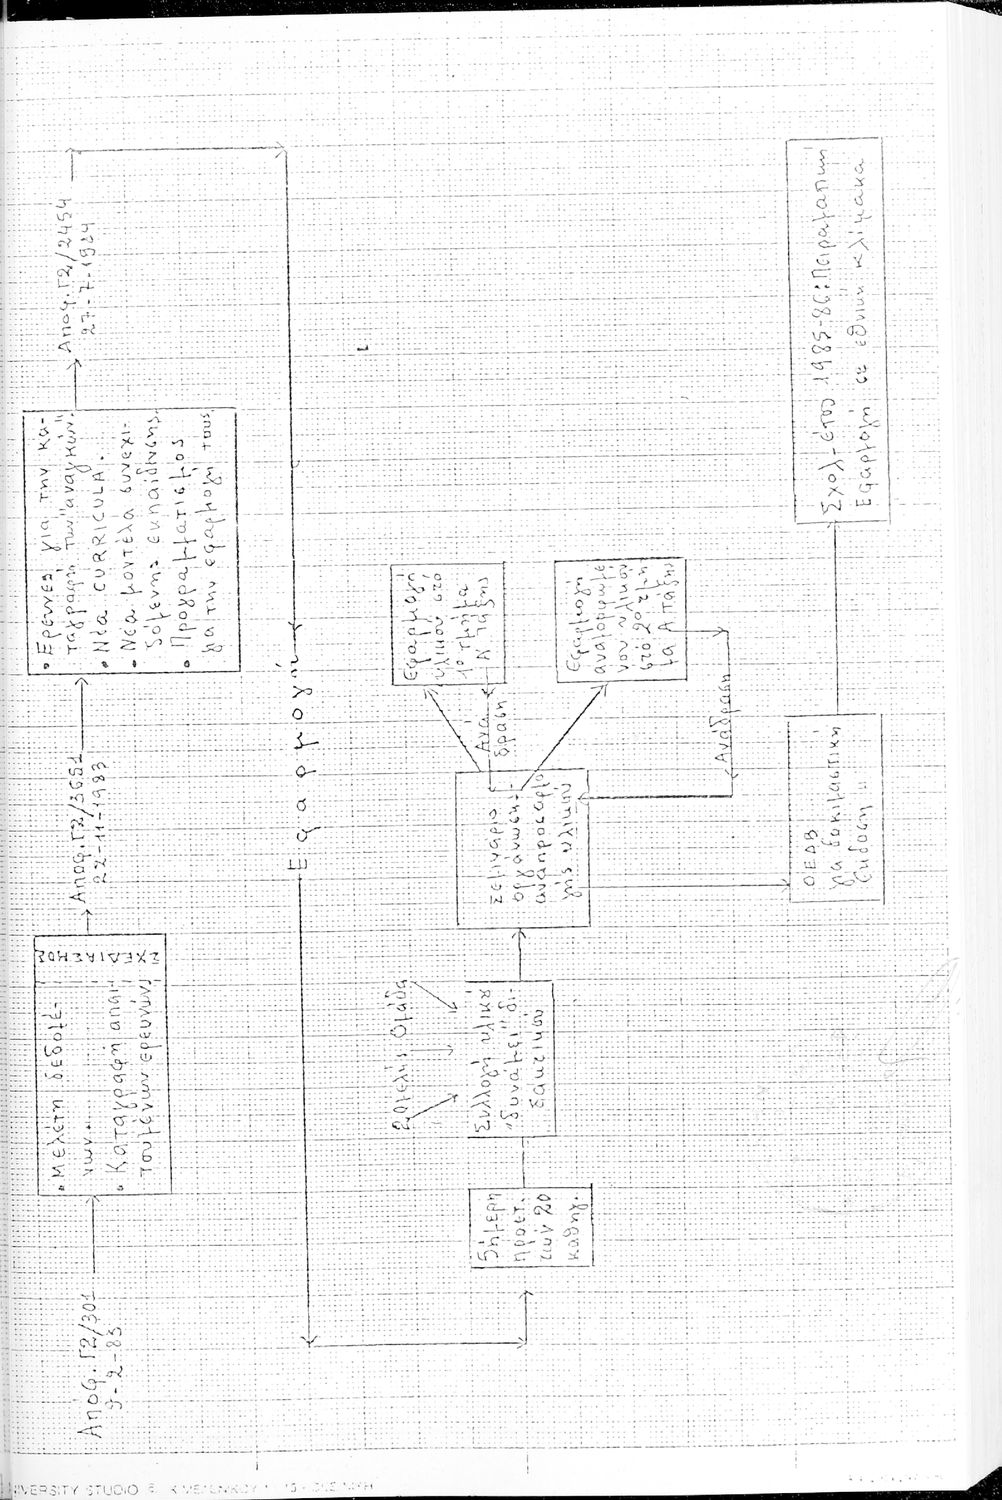 Αποφ. Γ2/301
9-2-83
• Μελέτη δεδομέ-
νων..
• Καταγραφή απαι-
τουμένων ερευνών
ΣΧΕΔΙΑΣΜΟΣ
Αποφ. Γ2/3651
22-11-1983
• Έρευνες για την κα-
ταγραφή των "αναγκών".
• Νέα CURRICULA.
• Νέα μοντέλα συνεχι-
ζόμενης εκπαίδευσης.
• Προγραμματισμός
για την εφαρμογή τους
Αποφ. Γ2/2454
27-7-1984
Εφαρμογή
5ήμερη
προετ.
των 20
καθηγ.
20μελής Ομάδα
Συλλογή υλικού
"δυνάμει" δι-
δακτικού
Σεμινάριο
οργάνωση-
αναπροσαρμο
γής υλικού
Ανά
δραση
Εφαρμογή
υλικού στο
1ο τμήμα
Α τάξης
Εφαρμογή
αναμορφωμέ
νου υλικού
στο 2ο τμή
μα Α τάξης
Ανάδραση
ΟΕΔΒ
για δοκιμαστική
έκδοση
Σχολ. έτος 1985-86: Πειραματική
Εφαρμογή σε εθνική κλίμακα
UNIVERSITY STUDIO